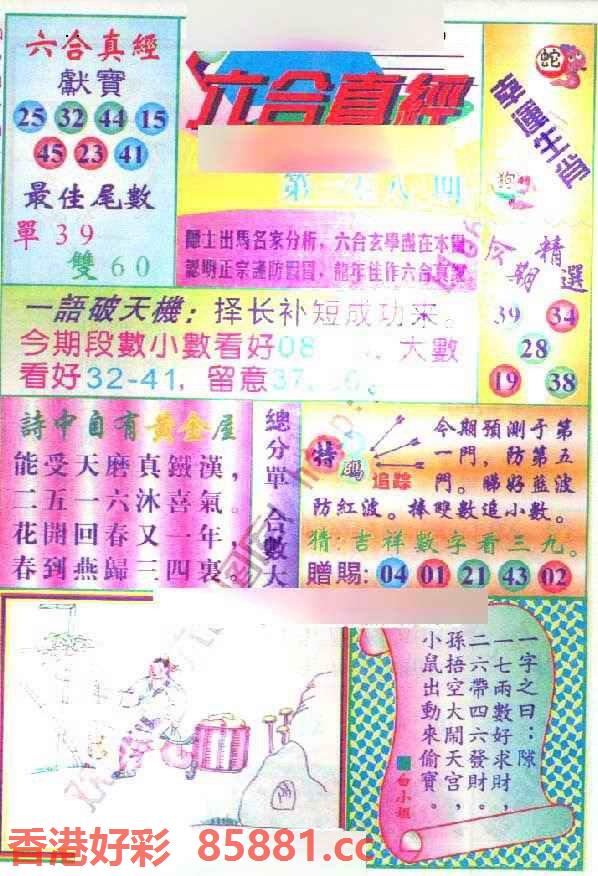 六合真經
獻寶
25 32 44 15
45 23 41
最佳尾數
單39
雙60
六合真經
隱士出馬名家分析，六合玄學盡在本圖
龍年佳作六合真經
蛇
狗
今期精選
39 34
28
19 38
一語破天機：择长补短成功来。
今期段數小數看好08 大數
看好32-41，留意37
詩中自有黃金屋
能受天磨真鐵漢，
二五一六沐喜氣。
花開回春又一年，
春到燕歸三四裏。
總分單 合數大
特碼
追踪
今期預測于第
一門，防第五
門。睇好藍波
防紅波。棒雙數追小數。
猜：吉祥數字看三九。
贈賜：04 01 21 43 02
一字之曰：隙
一七兩數好求財，
二六帶四六發財。
孫悟空大鬧天宮，
小鼠出動來偷寶。
白小姐
香港好彩 85881.cc